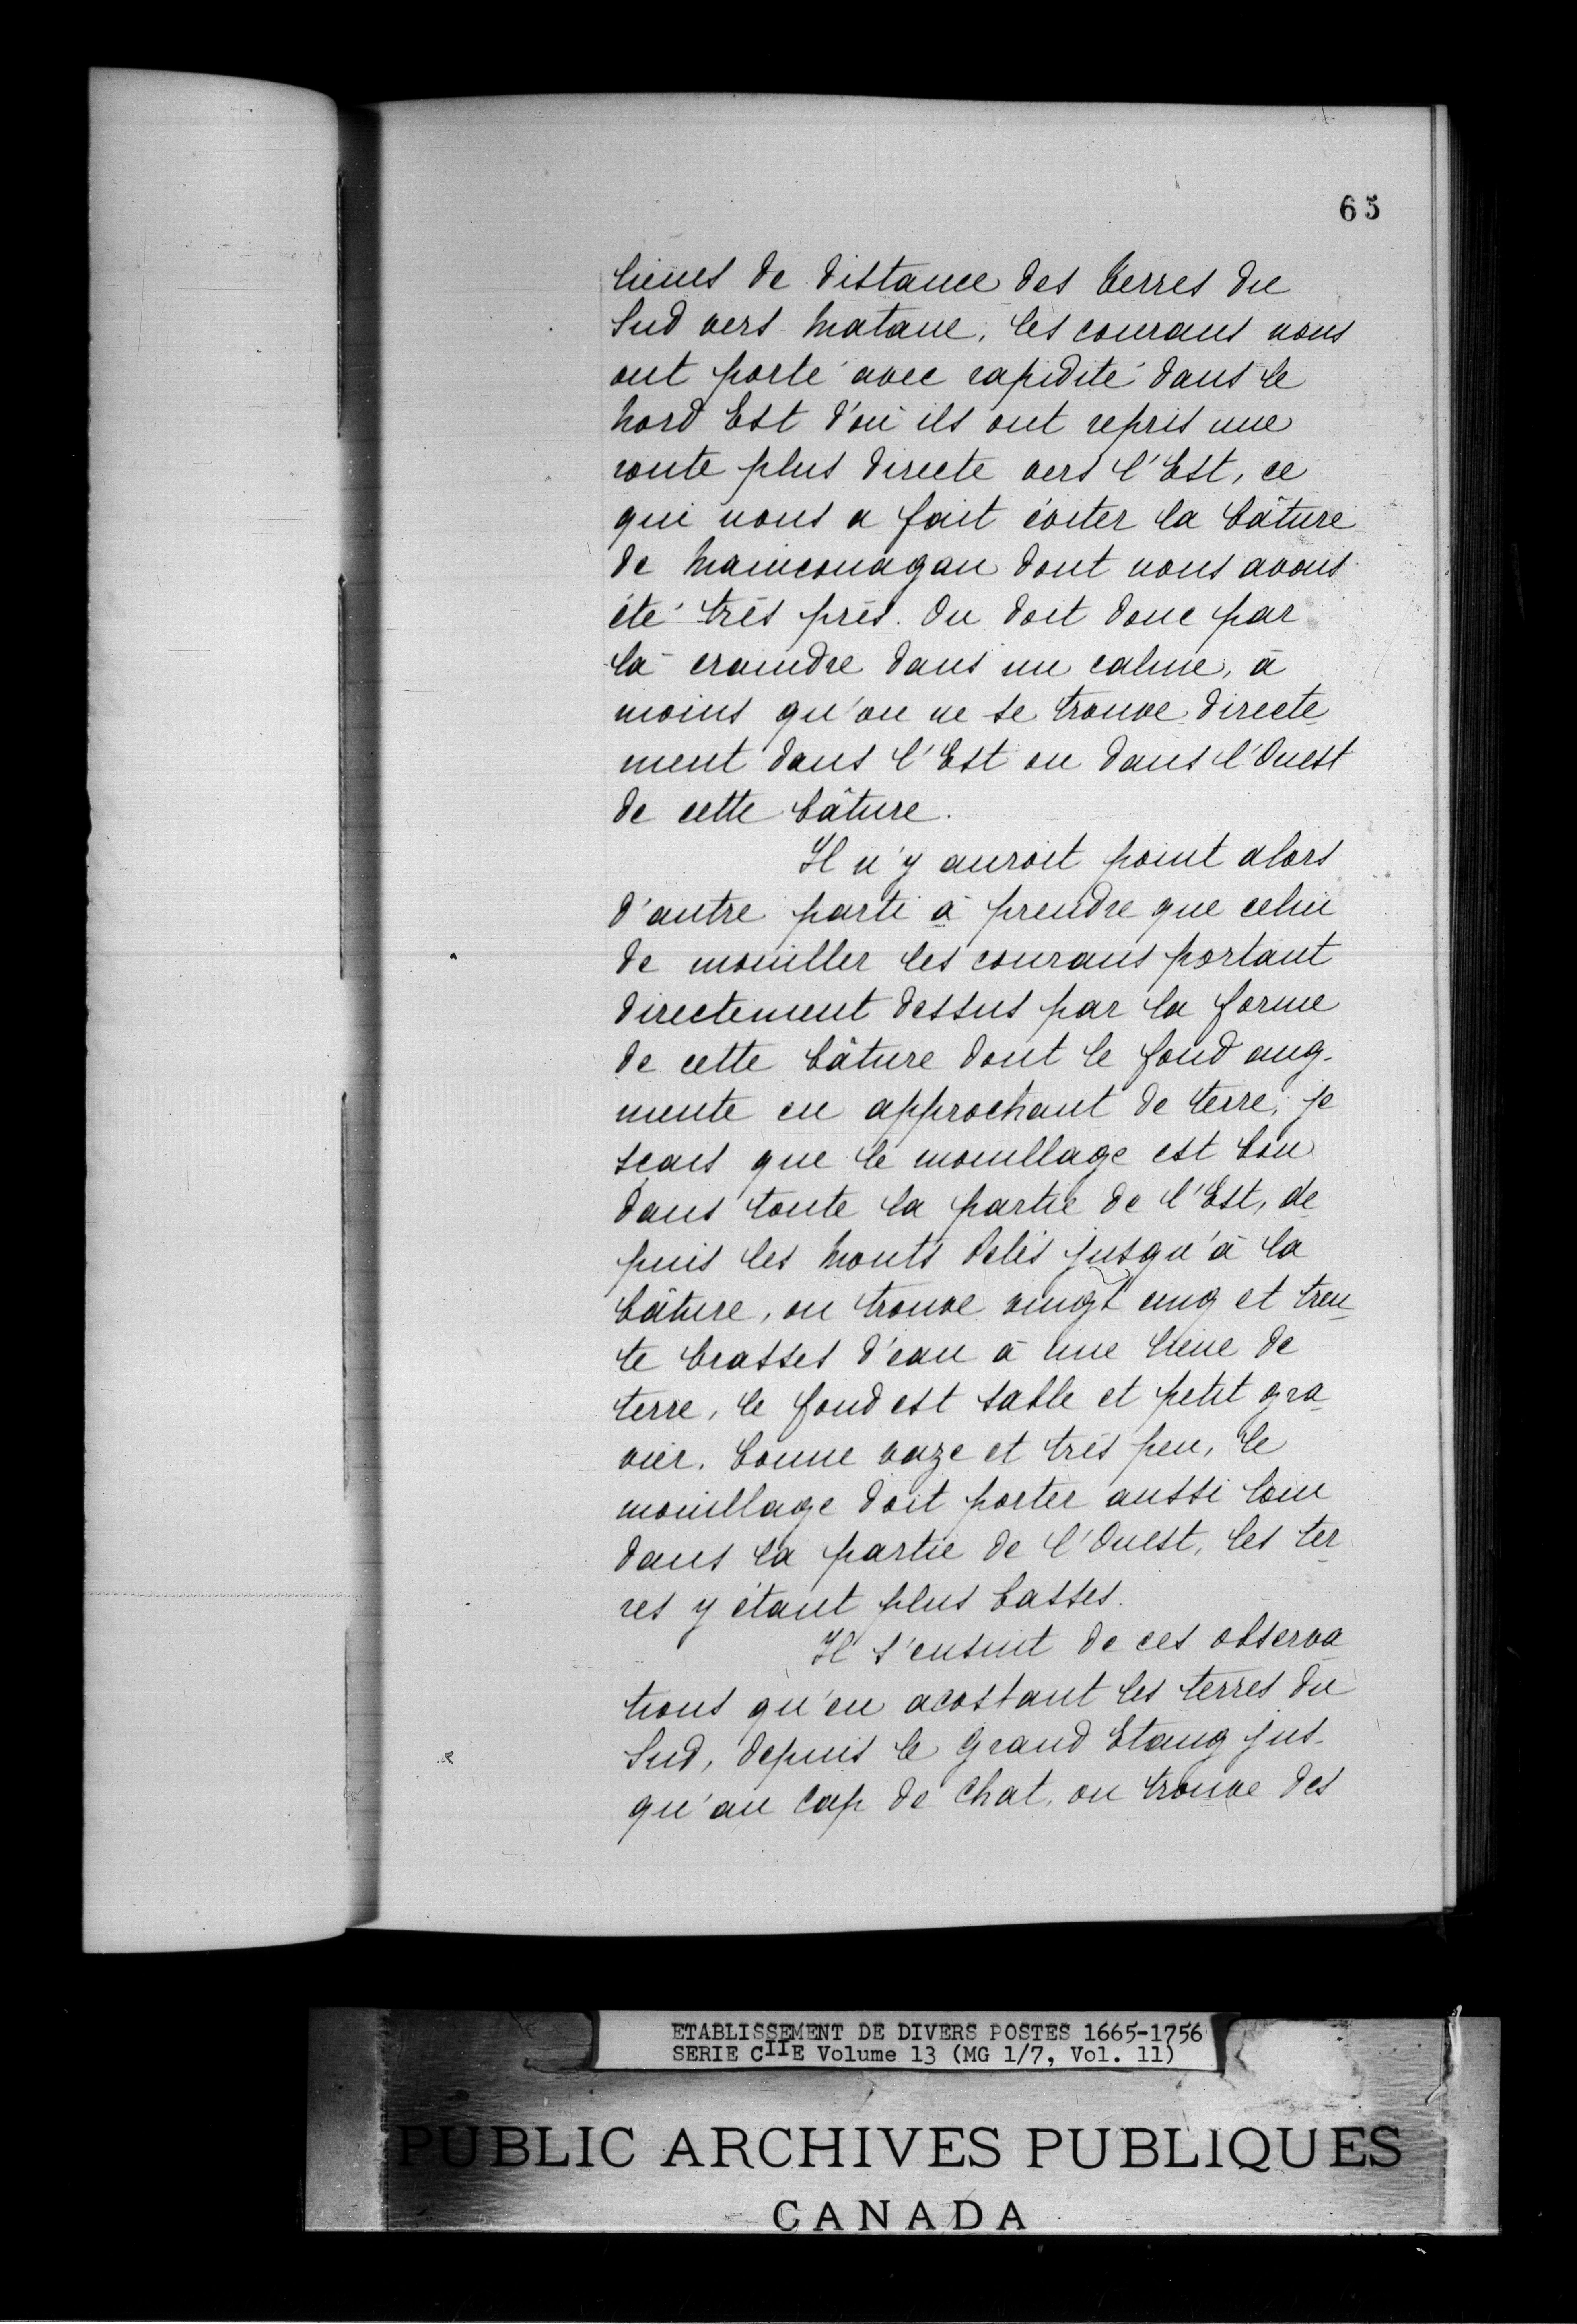 65
lieues de distance des terres du
Sud vers Matane, les courans nous
ont porté avec rapidité dans le
Nord Est d'où ils ont repris une
route plus directe vers l'Est, ce
qui nous a fait éviter la bâture
de Manicouagan dont nous avons
été très près. On doit donc par
là craindre dans un calme, à
moins qu'on ne se trouve directe
ment dans l'Est ou dans l'Ouest
de cette bâture.
Il n'y auroit point alors
d'autre parti à prendre que celui
de mouiller les courans portant
directement dessus par la forme
de cette bâture dont le fond aug-
mente en approchant de terre, je
sçais que le mouillage est bon
dans toute la partie de l'Est, de
puis les Monts Pelés jusqu'à la
bâture, on trouve vingt cinq et tren
te brasses d'eau à une lieue de
terre, le fond est sable et petit gra
vier, bonne vaze et très peu, le
mouillage doit porter aussi loin
dans la partie de l'Ouest, les ter
res y étant plus basses.
Il s'ensuit de ces observa
tions qu'en acostant les terres du
Sud, depuis le Grand Etang jus-
qu'au Cap de Chat, on trouve des
ETABLISSEMENT DE DIVERS POSTES 1665-1756
SERIE CIIE Volume 13 (MG 1/7, Vol. 11)
PUBLIC ARCHIVES PUBLIQUES
CANADA